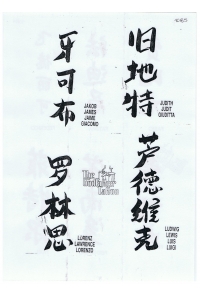 牙可布
JAKOB
JAMES
JAIME
GIACOMO
旧地特
JUDITH
JUDIT
GIUDITTA
The
罗林思
LORENZ
LAWRENCE
LORENZO
芦德维克
LUDWIG
LEWIS
LUIS
LUIGI